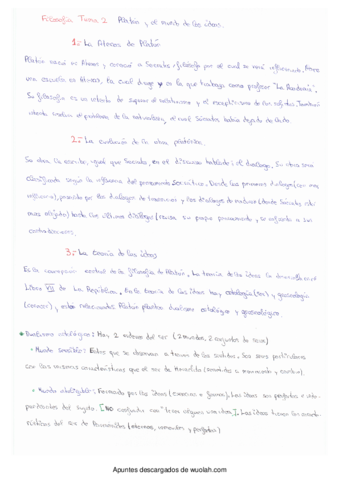 Filosofía Tema 2 Platón y el mundo de las ideas.
1.- La Atenas de Platón
Platón nació en Atenas y conoció a Sócrates, filósofo por el cual se verá influenciado. Abre
una escuela en Atenas, la cual dirige y en la que trabaja como profesor "La Academia".
Su filosofía es un intento de superar el relativismo y el escepticismo de los sofistas. También
intenta resolver el problema de la naturaleza, el cual Sócrates había dejado de lado.
2.- La evolución de la obra platónica.
Su obra la escribe, igual que Sócrates, en el discurso hablado: el diálogo. Su obra será
clasificada según la influencia del pensamiento Socrático. Desde los primeros diálogos (con más
influencia), pasando por los diálogos de transición y los diálogos de madurez (donde Sócrates está
más alejado) hasta los últimos diálogos (revisa su propio pensamiento, y se enfrenta a sus
contradicciones.
3.- La teoría de las ideas
Es la concepción central de la filosofía de Platón. La teoría de las ideas la desarrolla en el
Libro VII de La República. En la teoría de las ideas hay ontología (ser) y epistemología
(conocer), y están relacionados. Platón plantea dualismo ontológico y epistemológico.
Dualismo ontológico: Hay 2 órdenes del ser (2 mundos, 2 conjuntos de seres)
Mundo sensible: Entes que se observan a través de los sentidos. Son seres particulares
con las mismas características que el ser de Heráclito (sometido a movimiento y cambio).
Mundo inteligible: Formado por las Ideas (esencias o formas). Las ideas son perfectas e inde-
pendientes del sujeto. [NO confundir con "tener alguna una idea"]. Las ideas tienen las caracte-
rísticas del ser de Parménides (eternas, inmutables y perfectas)
Apuntes descargados de wuolah.com